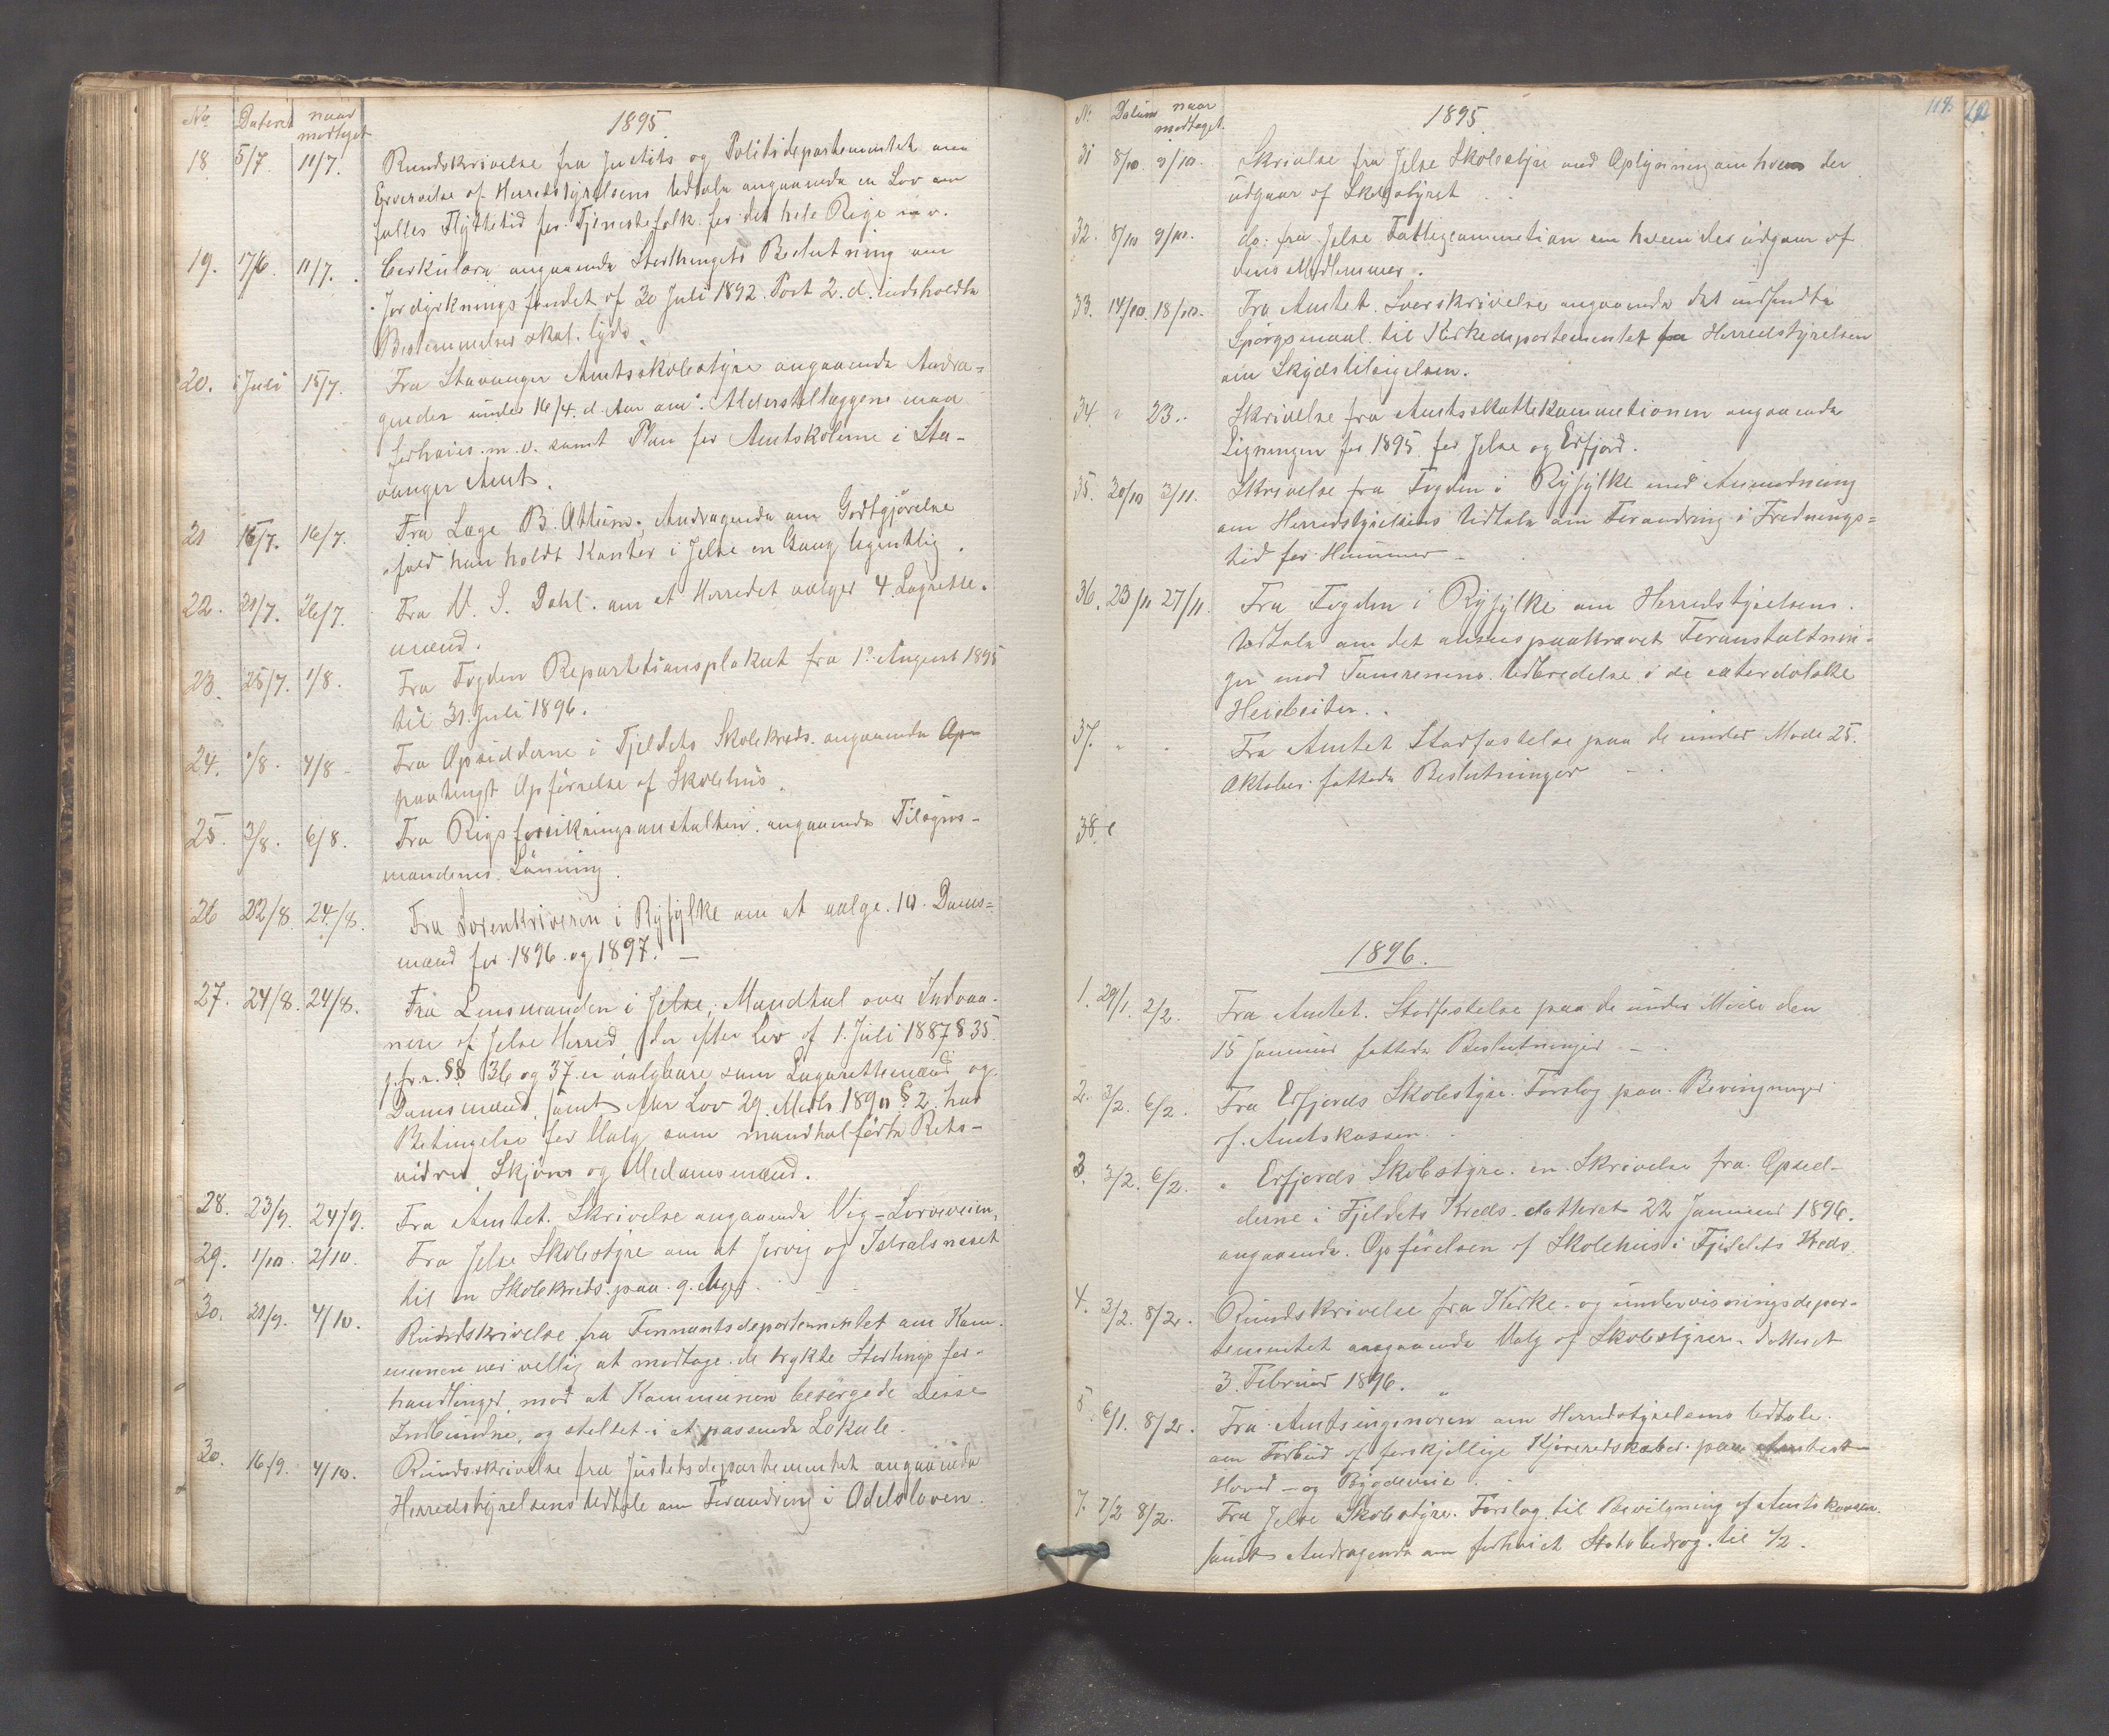 No Dateret naar modtaget 1895.
18 5/7. 11/7. Rundskrivelse fra Justits og Politidepartementet om
Ervervelse af Herredstyrelsens Udtale angaaende en Lov om
fælles Flyttetid for Tjenestefolk for det hele Rige m v.
19. 17/6. 11/7. Cirkulære angaaende Storthingets Beslutning om
Jordyrkningsfondet af 30 Juli 1892. Post 2. d. indeholdte
Bestemmelser skal lyde.
20. i Juli 15/7. Fra Stavanger Amtsskolestyre angaaende Andra-
gender under 16/4. d. Aar om Alderstillæggene maa
forhøies m. v. samt Plan for Amtskolerne i Sta-
vanger Amt.
21 15/7. 16/7. Fra Læge B. Attum, Andragende om Godtgjörelse
ifald han holdt Kontor i Jelse en Gang Ugentlig.
22. 21/7. 26/7. Fra N. S. Dahl. om at Herredet vælger 4 Lagrette-
mænd.
23. 25/7. 1/8. Fra Fogden Repartitionsplakat fra 1ste August 1895
til 31. Juli 1896.
24. 1/8. 4/8 Fra Opsidderne i Fjeldets Skolekreds. angaaende Op
paatengt Opförselse af Skolehus.
25. 3/8. 6/8. Fra Rigsforsikringsanstalten. angaaende Tilsyns-
mandenes Lönning.
26 22/8. 24/8. Fra Sorenskriveren i Ryfylke om at vælge. 10. Doms-
mænd for 1896 og 1897.
27. 24/8. 24/8. Fra Lensmanden i Jelse; Mandtal over Indvaa-
nere af Jelse Herred, der efter Lov af 1. Juli 1887 § 35.
jfr. §§ 36 og 37 er valgbare som Lagrettemænd og
Domsmænd, samt efter Lov 29. Marts 1890 § 2. har
Betingelse for Valg som mandtalförte Rets-
vidner, Skjöns og Meddomsmænd.
28. 23/9. 24/9. Fra Amtet. Skrivelse angaaende Vig-Lovraveien.
29. 1/10. 2/10. Fra Jelse Skolestyre om at Jorvig og
til en Skolekreds paa 9. Uger.
30. 21/9. 4/10. Rundskrivelse fra Finnantsdepartementet om Kom-
munen var villig at modtage de trykte Stortings for-
handlinger, mod at Kommunen besörgede disse
Indbundne, og stellet i et passende Lokale.
30. 16/9. 4/10. Rundsskrivelse fra Justitsdepartementet angaaende
Herredstyrelsens Udtale om Forandring i Odelsloven.
No Datum naar modtaget. 1895. 118.
31 8/10 9/10. Skrivelse fra Jelse Skolestyre med Oplysning om hvem der
udgaar af Skolestyret
32. 8/10 9/10. do. fra Jelse Fattigcommetion om hvem der udgaar af
dens Medlemmer.
33. 14/10. 18/10. Fra Amtet. Sverskrivelse angaaende det indsendte
Spörgsmaal til Kirkedepartementet fra Herredstyrelsen
om Skydstilsigelsen.
34. " 23. Skrivelse fra Amtsskattekommetionen angaaende
Ligningen for 1895 for Jelse og Erfjord.
35. 30/10 2/11. Skrivelse fra Fogden i Ryfylke med Anmodning
om Herredstyrelsens Udtale om Forandring i Frednings-
tid for Hummer
36. 23/11 27/11. Fra Fogden i Ryfylke om Herredstyrelsens.
Udtale om det ansees paakrævet Foranstaltnin-
ger mod Tamrenens Udbredelse i de
Heibeiter.
37. " " Fra Amtet Stadfæstelse paa de under Mode 25.
Oktober fattede Beslutninger
38.
1896.
1. 29/1. 2/2. Fra Amtet. Stadfestelse paa de under Möde den
15 Januar fattede Beslutninger
2. 3/2. 6/2. Fra Erfjords Skolestyre. Forslag paa Bevingninger
af Amtskassen.
3. 3/2. 6/2. " Erfjords Skolestyre. en Skrivelse fra Opsid-
derne i Fjeldets Kreds datteret 22 Januar 1896.
angaaende. Opförelsen af Skolehus i Fjeldets Kreds.
4. 3/2. 8/2. Rundskrivelse fra Kirke- og undervisningsdepar-
tementet angaaende Valg af Skolestyrere datteret
3. Februar 1896.
5. 6/1. 8/2. Fra Amtsingeniøren om Herredstyrelsens Udtale.
om Forbud af forskjellige Kjöreredskaber paa
Hoved- og Bygdeveie.
7. 7/2 8/2. Fra Jelse Skolestyre. Forslag til Bevilgning af Amtskassen.
samt Andragende om forhöiet Statsbidrag til 1/2.